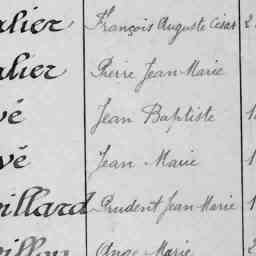 alier François Auguste César 2
alier Pierre Jean Marie
vé Jean Baptiste 1
vé Jean Marie 1
villard Prudent Jean Marie 1
villon Ange Marie 2